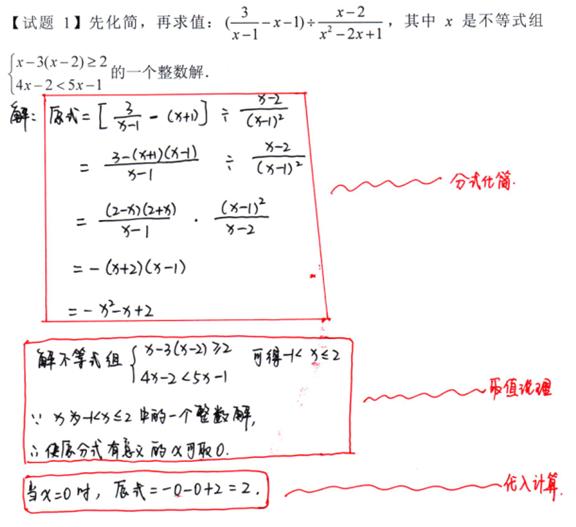 【试题 1】先化简，再求值：(3/(x-1) - x - 1) ÷ (x-2)/(x²-2x+1)，其中 x 是不等式组
{x-3(x-2)≥2
4x-2<5x-1 的一个整数解．
解：原式=[3/(x-1) - (x+1)] ÷ (x-2)/(x-1)²
= (3-(x+1)(x-1))/(x-1) ÷ (x-2)/(x-1)²
分式化简.
= (2-x)(2+x)/(x-1) · (x-1)²/(x-2)
= -(x+2)(x-1)
= -x²-x+2
解不等式组 {x-3(x-2)≥2 可得-1<x≤2
4x-2<5x-1
取值说理
∵ x为-1<x≤2中的一个整数解,
∴使原分式有意义的x可取0.
当x=0时，原式=-0-0+2=2.
代入计算.